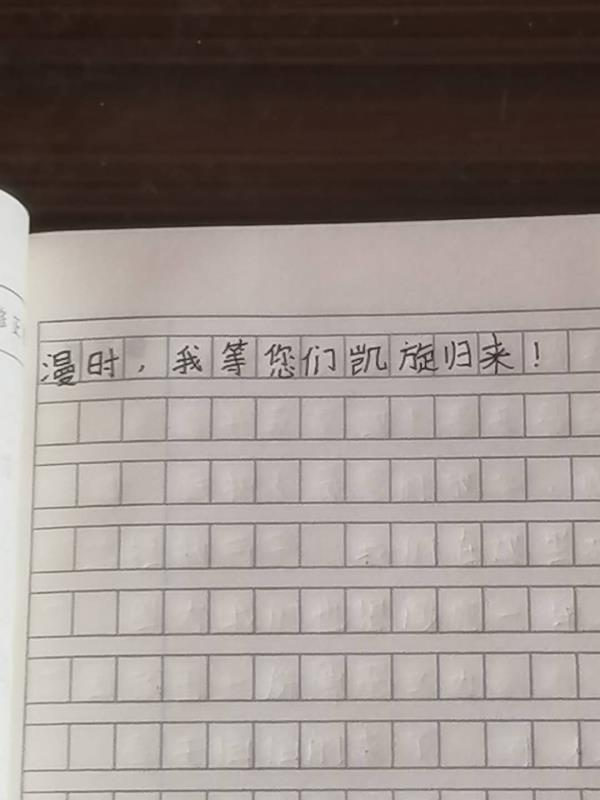 修正
漫时，我等您们凯旋归来！